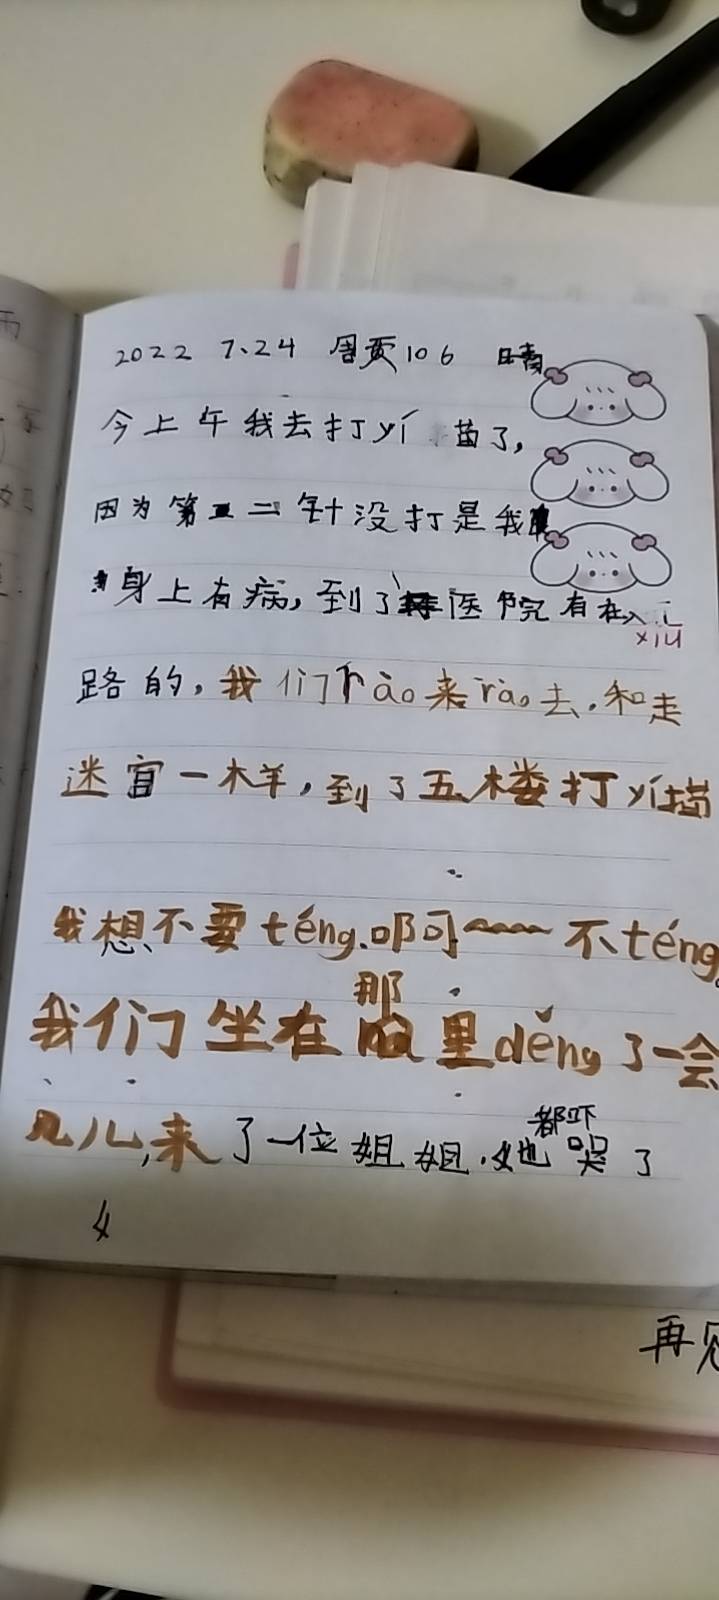 2022 7.24 周 106 晴
今上午我去打yí苗了,
因为第二针没打是我
身上有病,到了医院有在xiū
路的,我们rào来rào去.和走
迷宫一样,到了五楼打yí苗
我想不要téng.啊~~不téng。
我们坐在那里děng了一会
儿,来了一位姐姐.她都吓哭了
4
再见